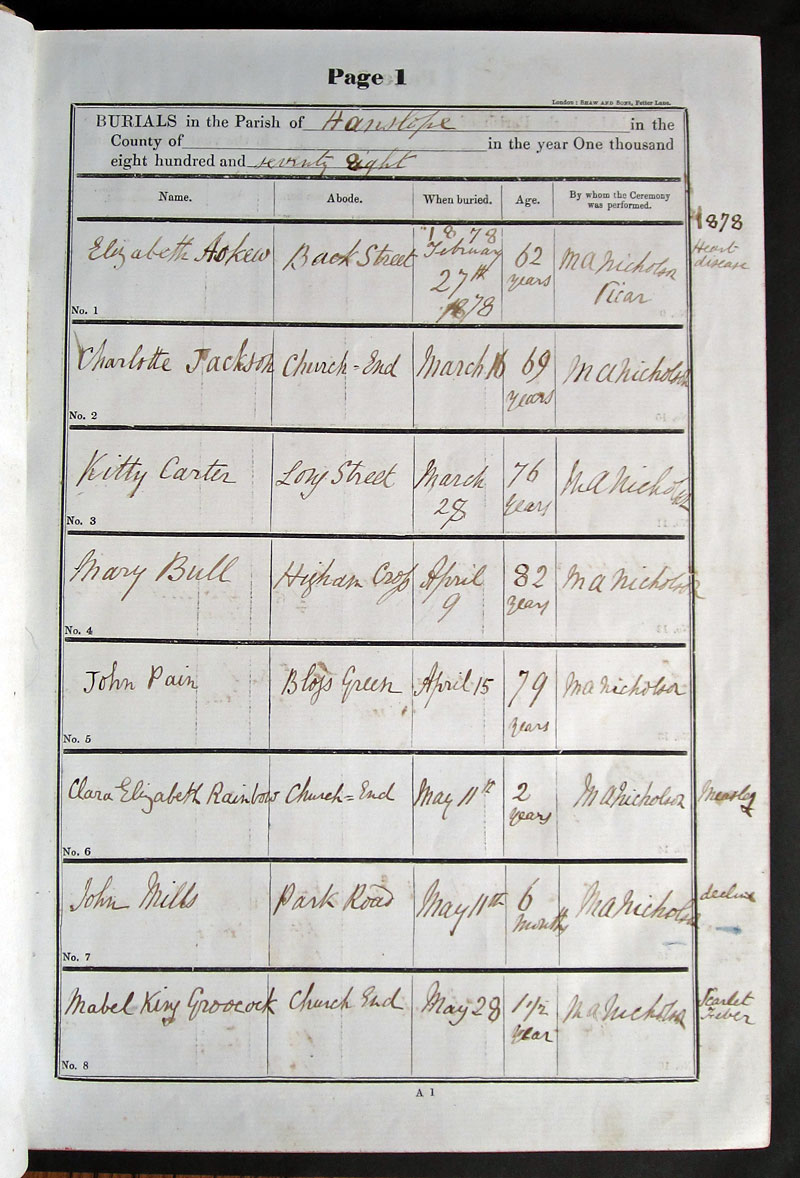 Page 1
London: SHAW AND SONS, Fetter Lane.
BURIALS in the Parish of Hanslope in the
County of in the year One thousand
eight hundred and seventy eight
Name. Abode. When buried. Age. By whom the Ceremony was performed.
1878
Elizabeth Askew Back Street 1878 February 27th 1878 62 years M A Nicholson Vicar Heart disease
No. 1
Charlotte Jackson Church=End March 16 69 years M A Nicholson
No. 2
Kitty Carter Long Street March 28 76 years M A Nicholson
No. 3
Mary Bull Higham Cross April 9 82 years M A Nicholson
No. 4
John Pain Bloss Green April 15 79 years M A Nicholson
No. 5
Clara Elizabeth Rainbow Church=End May 11th 2 years M A Nicholson Measles
No. 6
John Mills Park Road May 11th 6 months M A Nicholson decline
No. 7
Mabel King Groocock Church End May 28 1 1/2 year M A Nicholson Scarlet Fever
No. 8
A 1